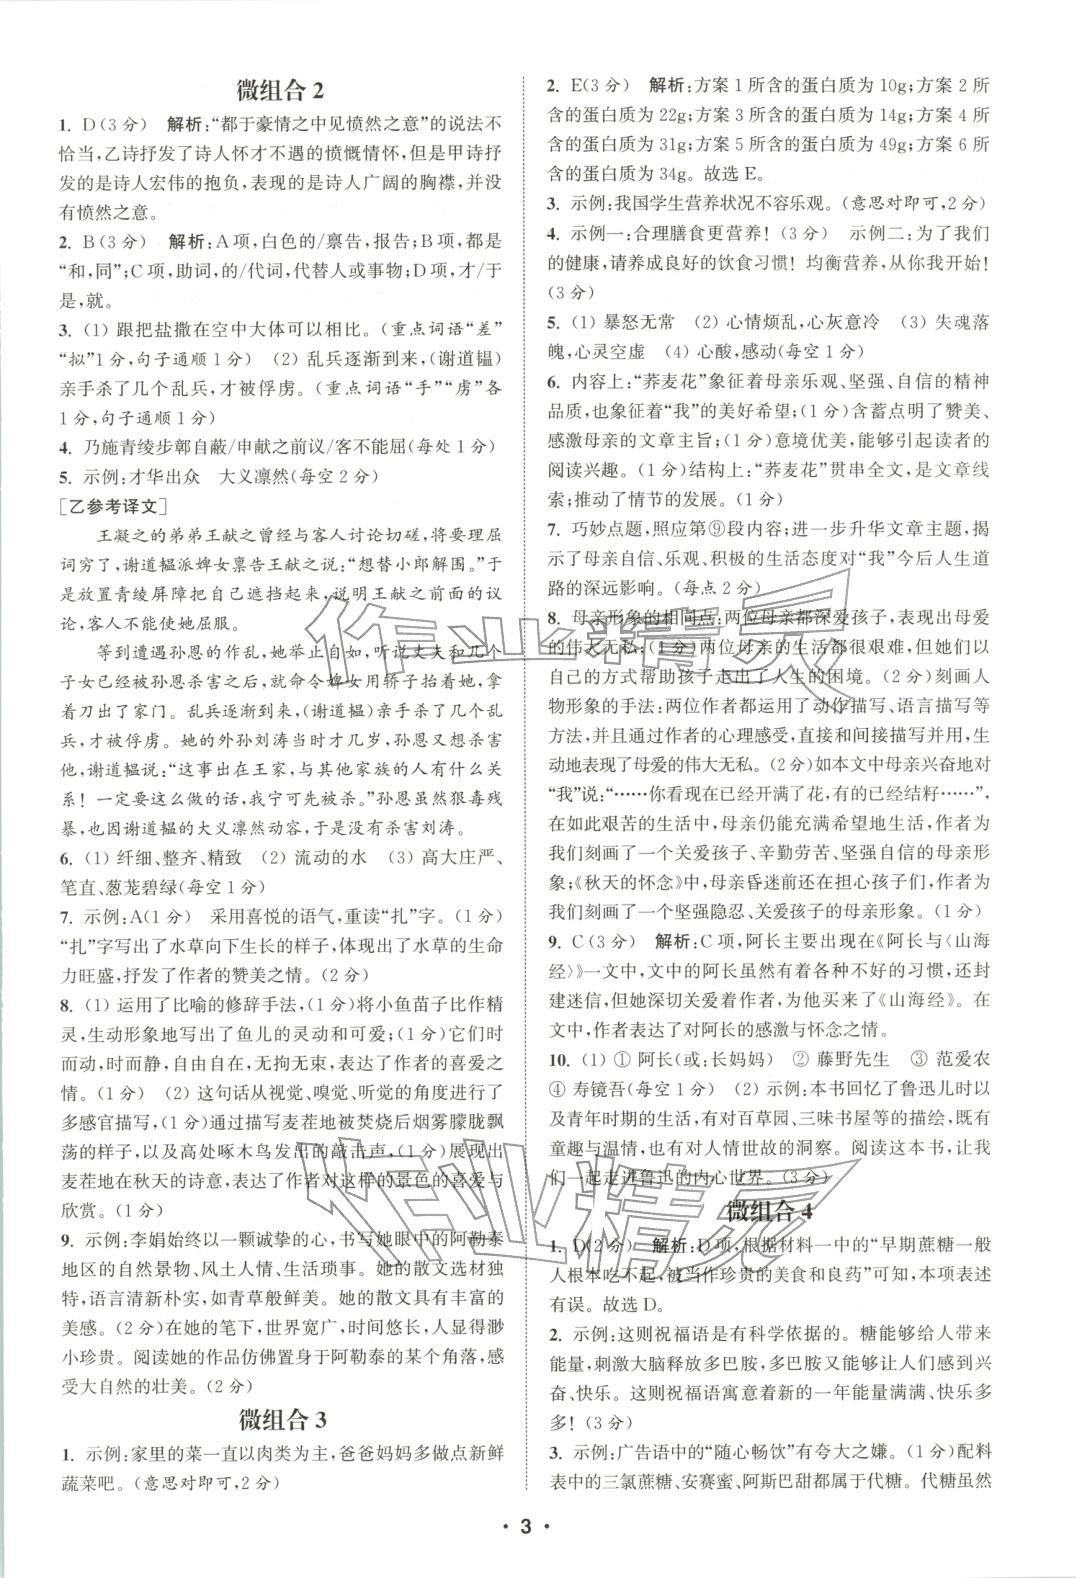 微组合 2
1. D(3分) 解析:“都于豪情之中见愤然之意”的说法不
恰当,乙诗抒发了诗人怀才不遇的愤慨情怀,但是甲诗抒
发的是诗人宏伟的抱负,表现的是诗人广阔的胸襟,并没
有愤然之意。
2. B(3分) 解析:A项,白色的/禀告,报告;B项,都是
“和,同”;C项,助词,的/代词,代替人或事物;D项,才/于
是,就。
3. (1) 跟把盐撒在空中大体可以相比。(重点词语“差”
“拟”1分,句子通顺1分) (2) 乱兵逐渐到来,(谢道韫)
亲手杀了几个乱兵,才被俘虏。(重点词语“手”“虏”各
1分,句子通顺1分)
4. 乃施青绫步鄣自蔽/申献之前议/客不能屈(每处1分)
5. 示例:才华出众 大义凛然(每空2分)
[乙参考译文]
王凝之的弟弟王献之曾经与客人讨论切磋,将要理
屈词穷了,谢道韫派婢女禀告王献之说:“想替小郎解围。”于
是放置青绫屏障把自己遮挡起来,说明王献之前面的议
论,客人不能使她屈服。
等到遭遇孙恩的作乱,她举止自如,听说丈夫和几个
子女已经被孙恩杀害之后,就命令婢女用轿子抬着她,拿
着刀出了家门。乱兵逐渐到来,(谢道韫)亲手杀了几个乱
兵,才被俘虏。她的外孙刘涛当时才几岁,孙恩又想杀害
他,谢道韫说:“这事出在王家,与其他家族的人有什么关
系!一定要这么做的话,我宁可先被杀。”孙恩虽然狠毒残
暴,也因为谢道韫的大义凛然动容,于是没有杀害刘涛。
6. (1) 纤细、整齐、精致 (2) 流动的水 (3) 高大庄严、
笔直、葱茏碧绿(每空1分)
7. 示例:A(1分) 采用喜悦的语气,重读“扎”字。(1分)
“扎”字写出了水草向下生长的样子,体现出了水草的生命
力旺盛,抒发了作者的赞美之情。(2分)
8. (1) 运用了比喻的修辞手法,(1分)将小鱼苗子比作精
灵,生动形象地写出了鱼儿的灵动和可爱;(1分)它们时
而动,时而静,自由自在,无拘无束,表达了作者的喜爱之
情。(1分) (2) 这句话从视觉、嗅觉、听觉的角度进行了
多感官描写,(1分)通过描写麦茬地被焚烧后烟雾朦胧飘
荡的样子,以及高处啄木鸟发出的敲击声,(1分)展现出
麦茬地在秋天的诗意,表达了作者对这样的景色的喜爱与
欣赏。(1分)
9. 示例:李娟始终以一颗诚挚的心,书写她眼中的阿勒泰
地区的自然景物、风土人情、生活琐事。她的散文选材独
特,语言清新朴实,如青草般鲜美。她的散文具有丰富的
美感。(2分)在她的笔下,世界宽广,时间悠长,人显得渺
小珍贵。阅读她的作品仿佛置身于阿勒泰的某个角落,感
受大自然的壮美。(2分)
微组合 3
1. 示例:家里的菜一直以肉类为主,爸爸妈妈多做点新鲜
蔬菜吧。(意思对即可,2分)
2. E(3分) 解析:方案1所含的蛋白质为10g;方案2所
含的蛋白质为22g;方案3所含的蛋白质为14g;方案4所
含的蛋白质为31g;方案5所含的蛋白质为49g;方案6所
含的蛋白质为34g。故选E。
3. 示例:我国学生营养状况不容乐观。(意思对即可,2分)
4. 示例一:合理膳食更营养!(3分) 示例二:为了我们
的健康,请养成良好的饮食习惯!均衡营养,从你我开始!
(3分)
5. (1) 暴怒无常 (2) 心情烦乱,心灰意冷 (3) 失魂落
魄,心灵空虚 (4) 心酸,感动(每空1分)
6. 内容上:“荞麦花”象征着母亲乐观、坚强、自信的精神
品质,也象征着“我”的美好希望;(1分)含蓄点明了赞美、
感激母亲的文章主旨;(1分)意境优美,能够引起读者的
阅读兴趣。(1分)结构上:“荞麦花”贯串全文,是文章线
索;推动了情节的发展。(1分)
7. 巧妙点题,照应第⑨段内容;进一步升华文章主题,揭
示了母亲自信、乐观、积极的生活态度对“我”今后人生道
路的深远影响。(每点2分)
8. 母亲形象的相同点:两位母亲都深爱孩子,表现出母爱
的伟大无私;(1分)两位母亲的生活都很艰难,但她们以
自己的方式帮助孩子走出了人生的困境。(2分)刻画人
物形象的手法:两位作者都运用了动作描写、语言描写等
方法,并且通过作者的心理感受,直接和间接描写并用,生
动地表现了母爱的伟大无私。(2分)如本文中母亲兴奋地对
“我”说:“……你看现在已经开满了花,有的已经结籽……”,
在如此艰苦的生活中,母亲仍能充满希望地生活,作者为
我们刻画了一个关爱孩子、辛勤劳苦、坚强自信的母亲形
象;《秋天的怀念》中,母亲昏迷前还在担心孩子们,作者为
我们刻画了一个坚强隐忍、关爱孩子的母亲形象。(1分)
9. C(3分) 解析:C项,阿长主要出现在《阿长与〈山海
经〉》一文中,文中的阿长虽然有着各种不好的习惯,还封
建迷信,但她深切关爱着作者,为他买来了《山海经》。在
文中,作者表达了对阿长的感激与怀念之情。
10. (1) ① 阿长(或:长妈妈) ② 藤野先生 ③ 范爱农
④ 寿镜吾(每空1分) (2) 示例:本书回忆了鲁迅儿时以
及青年时期的生活,有对百草园、三味书屋等的描绘,既有
童趣与温情,也有对人情世故的洞察。阅读这本书,让我
们一起走进鲁迅的内心世界。(3分)
微组合 4
1. D(2分) 解析:D项,根据材料一中的“早期蔗糖一般
人根本吃不起,被当作珍贵的美食和良药”可知,本项表述
有误。故选D。
2. 示例:这则祝福语是有科学依据的。糖能够给人带来
能量,刺激大脑释放多巴胺,多巴胺又能够让人们感到兴
奋、快乐。这则祝福语寓意着新的一年能量满满、快乐多
多!(3分)
3. 示例:广告语中的“随心畅饮”有夸大之嫌。(1分)配料
表中的三氯蔗糖、安赛蜜、阿斯巴甜都属于代糖。代糖虽然
· 3 ·
作业精灵
作业精灵